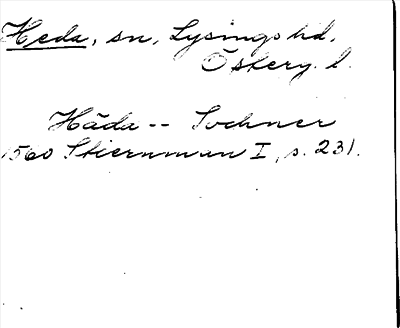 Heda, sn, Lysings hd,
Österg. l.
Häda -- Sochner
1560 Stiernman I, s. 231.